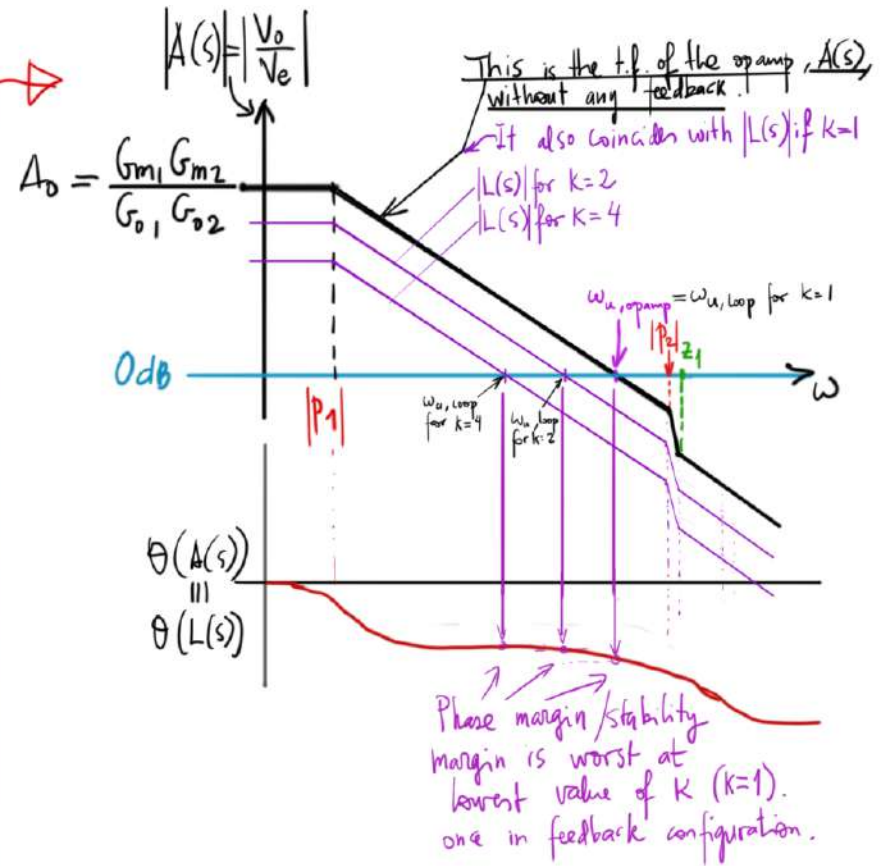 |A(s)|=|Vo/Ve|
This is the t.f. of the opamp, A(s),
without any feedback.
It also coincides with |L(s)| if k=1
Ao = Gm1 Gm2 / Go1 Go2
|L(s)| for k=2
|L(s)| for k=4
ωu,opamp = ωu,loop for k=1
|P2|
z1
0dB
ω
|P1|
ωu,loop
for k=4
ωu,loop
for k=2
θ(A(s))
=
θ(L(s))
Phase margin/stability
margin is worst at
lowest value of k (k=1).
once in feedback configuration.